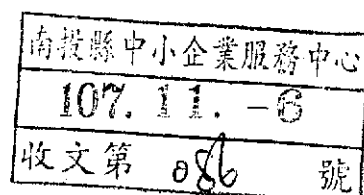 南投縣中小企業服務中心
107. 11. -6
收文第 086 號